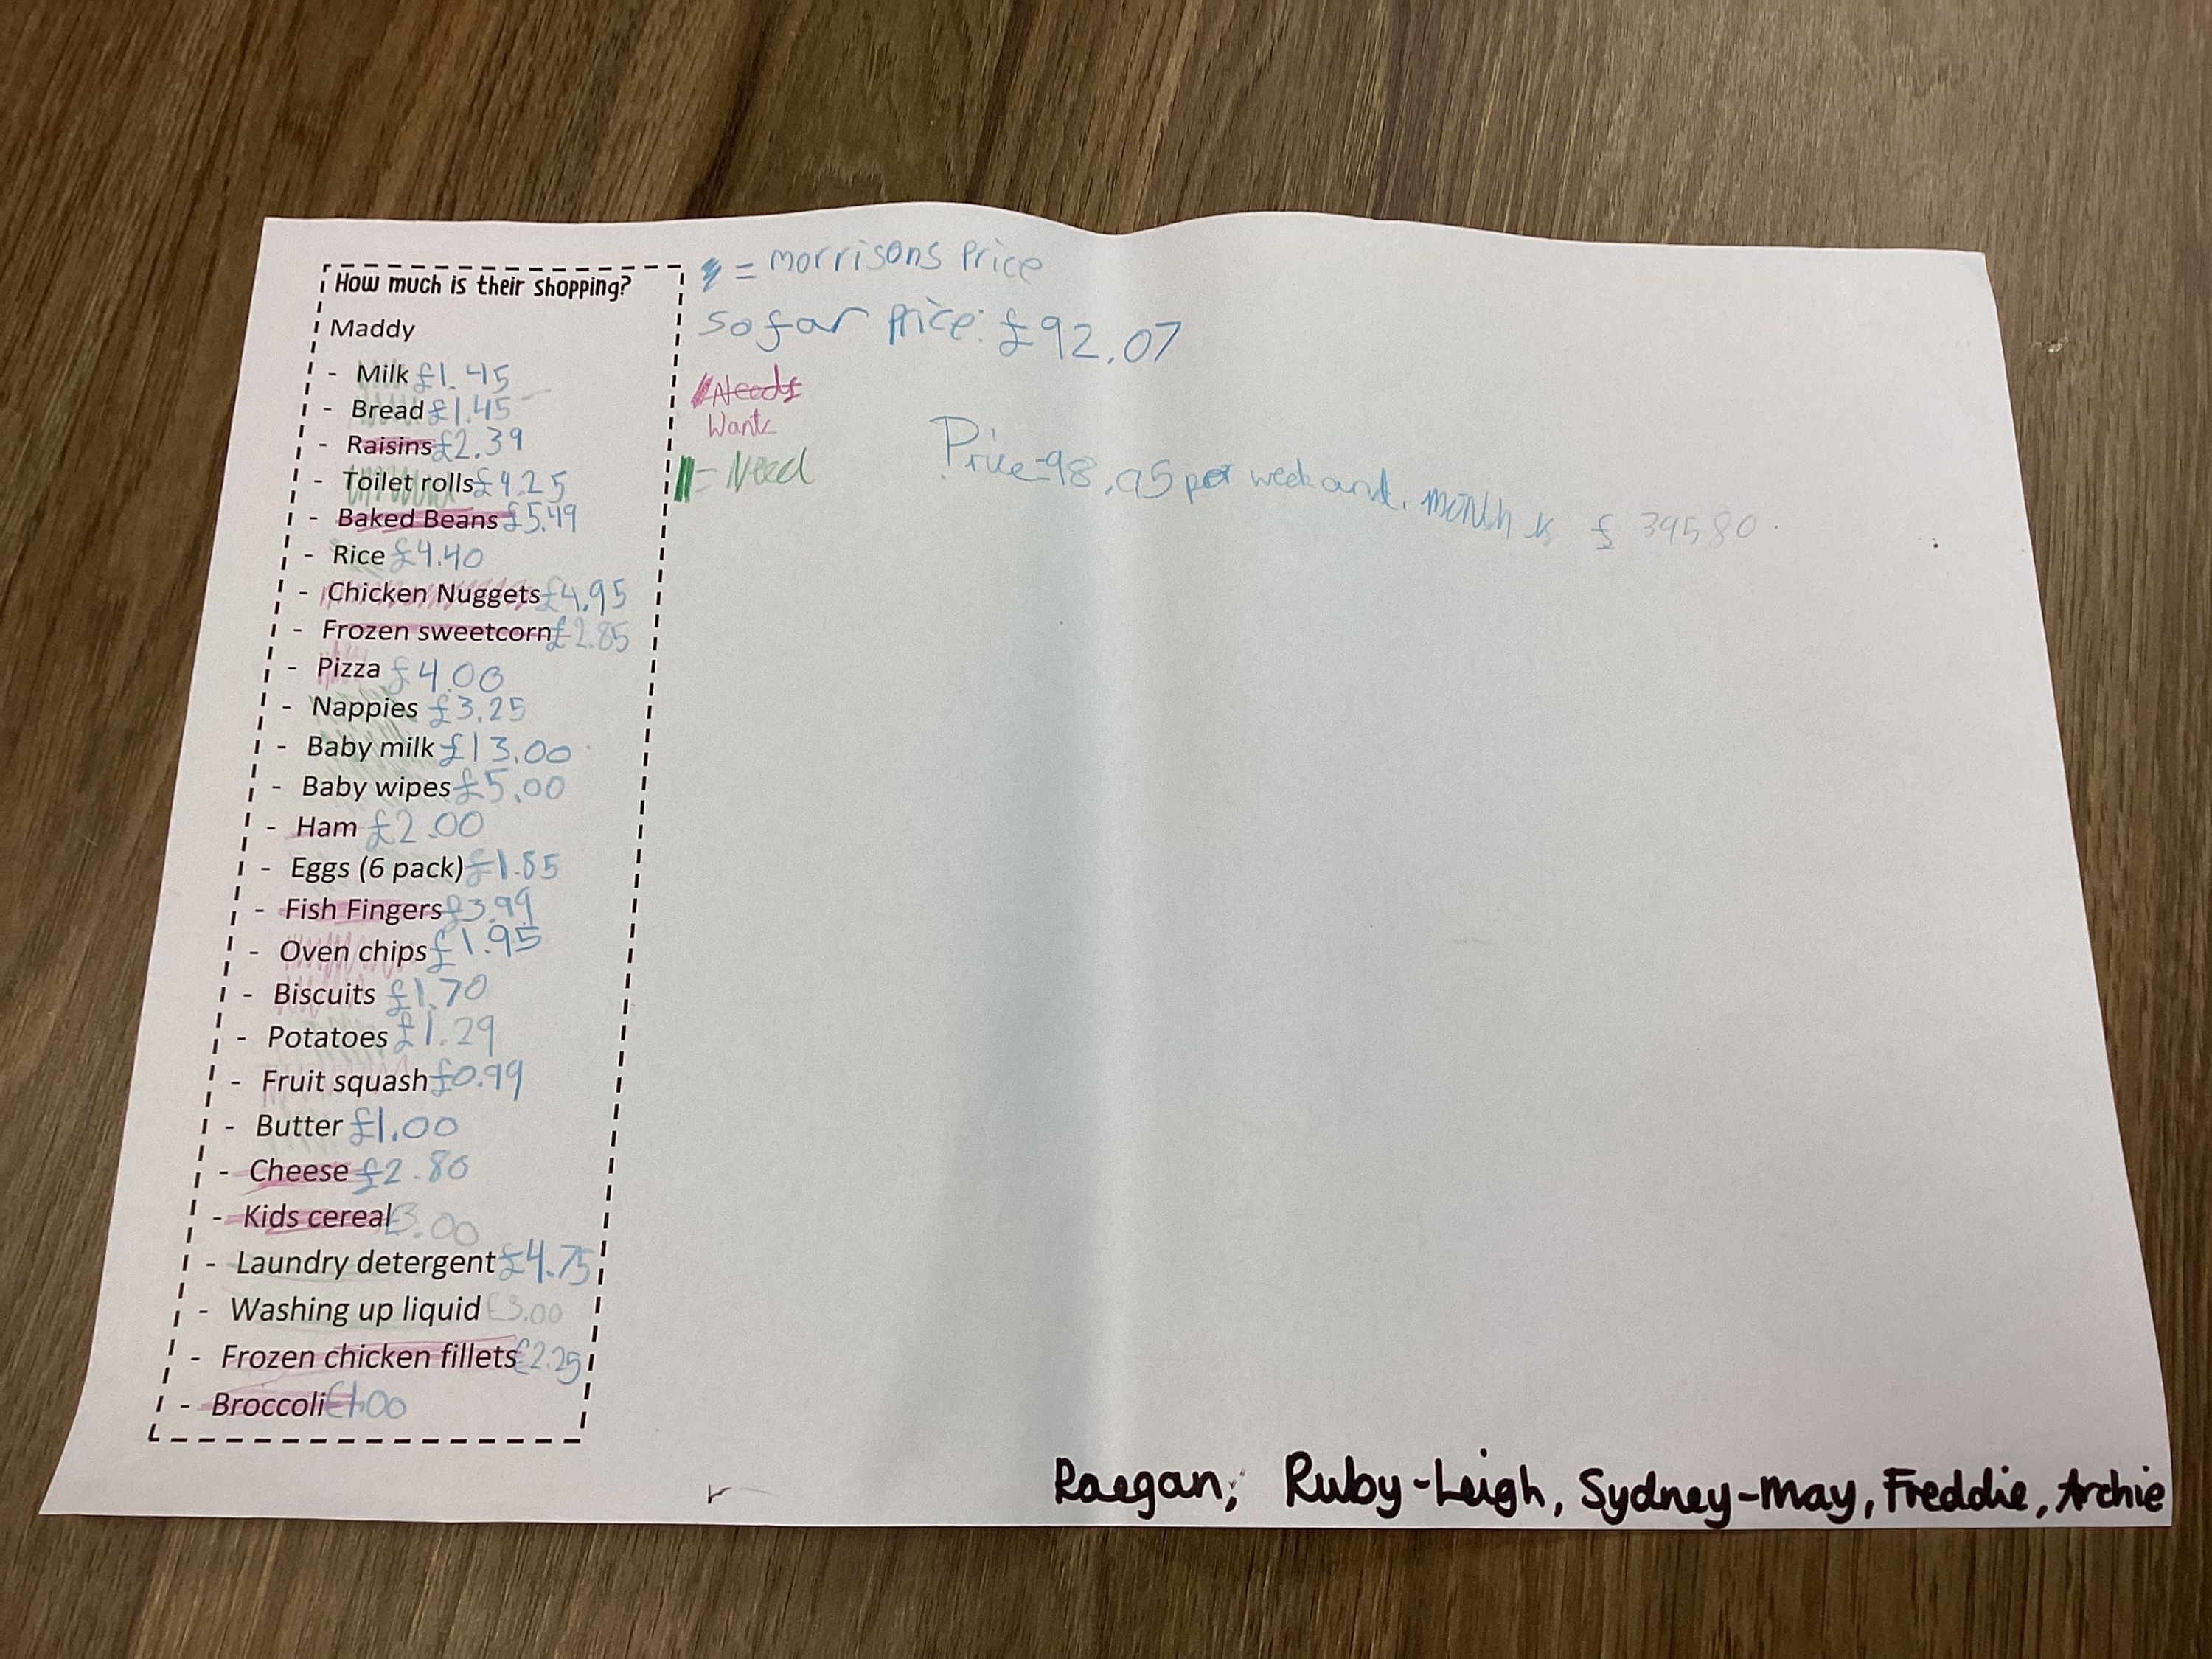 How much is their shopping?
Maddy
- Milk £1.45
- Bread £1.45
- Raisins £2.39
- Toilet rolls £4.25
- Baked Beans £5.49
- Rice £4.40
- Chicken Nuggets £4.95
- Frozen sweetcorn £2.85
- Pizza £4.00
- Nappies £3.25
- Baby milk £13.00
- Baby wipes £5.00
- Ham £2.00
- Eggs (6 pack) £1.85
- Fish Fingers £3.99
- Oven chips £1.95
- Biscuits £1.70
- Potatoes £1.29
- Fruit squash £0.99
- Butter £1.00
- Cheese £2.80
- Kids cereal £3.00
- Laundry detergent £4.75
- Washing up liquid £3.00
- Frozen chicken fillets £2.25
- Broccoli £1.00
= morrisons Price
so far Price: £92.07
Needs
Want
= Need
Price 98.95 per week and. month is £ 395,80
Raegan, Ruby-Leigh, Sydney-May, Freddie, Archie